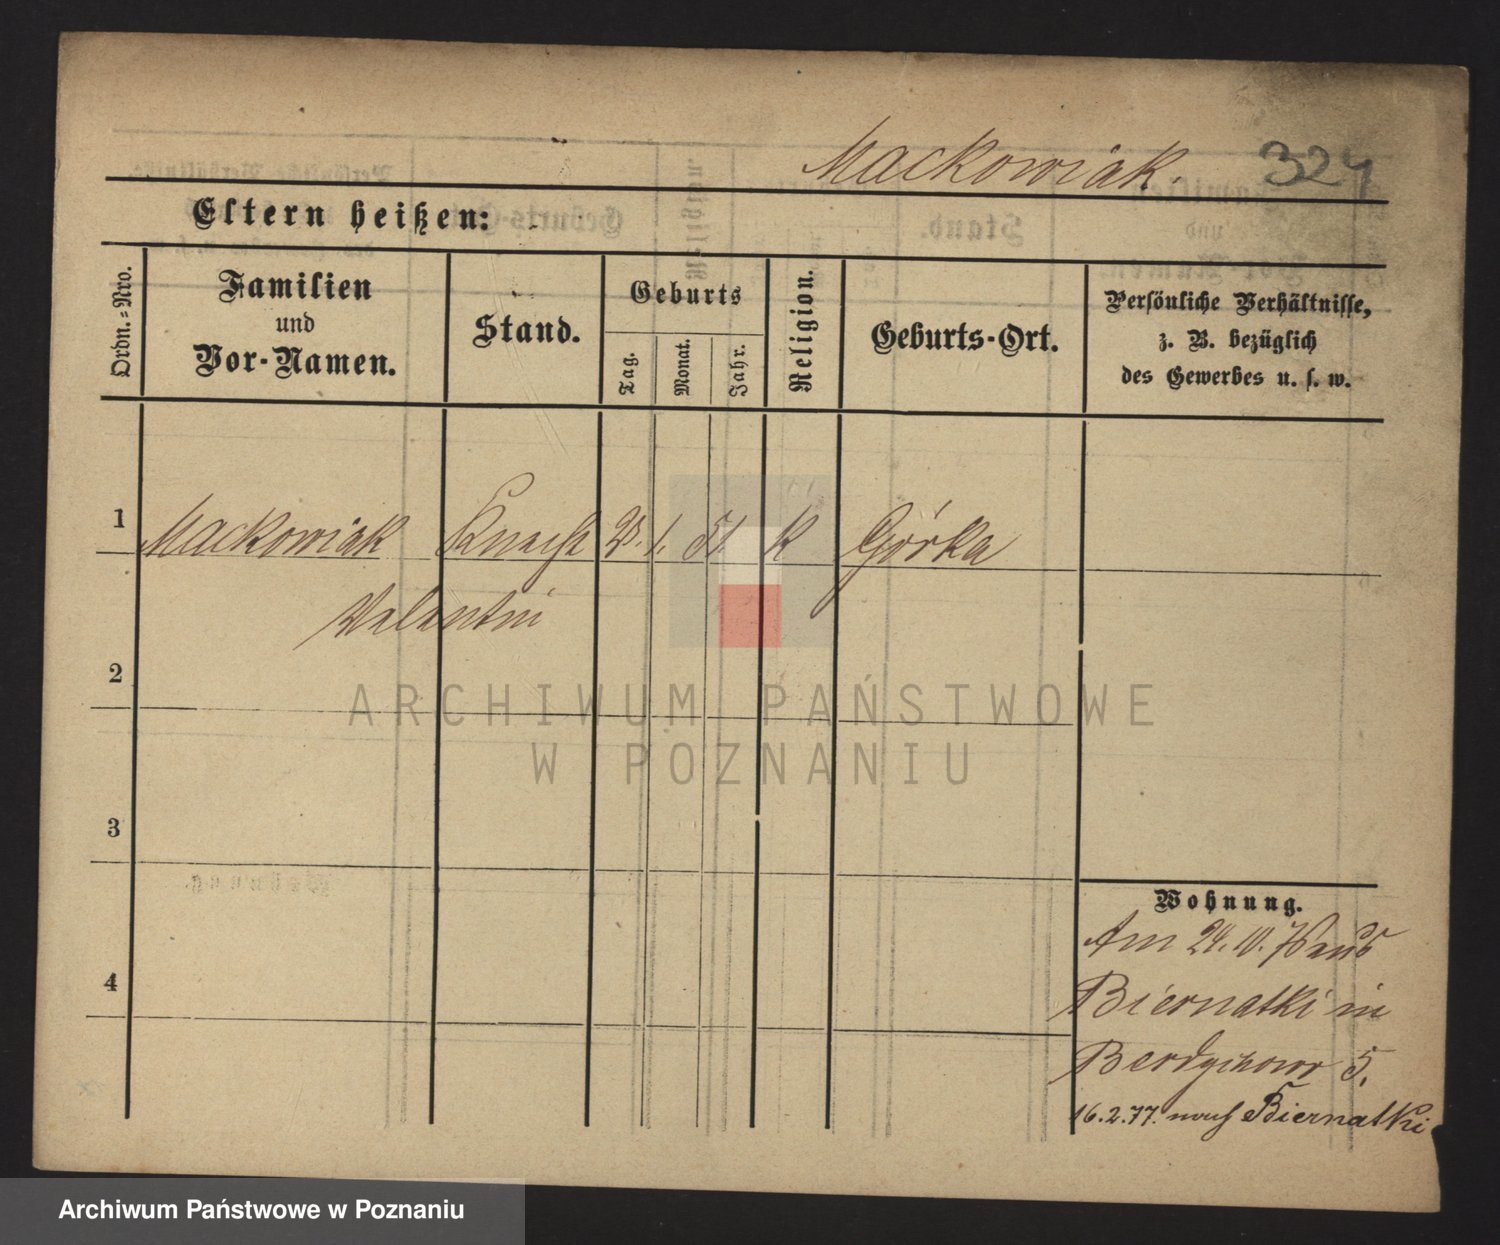 Mackowiak. 324
Eltern heißen:
Ordn.-Nro.
Familien
und
Vor-Namen.
Stand.
Geburts
Tag.
Monat.
Jahr.
Religion.
Geburts-Ort.
Persönliche Verhältnisse,
z. B. bezüglich
des Gewerbes u. s. w.
1 Mackowiak Knecht 1. 51 K Górka
Valentin
2
3
4
Wohnung.
Am 24. 10. 76 aus
Biernatki in
Berdychowo 5.
16.2.77. nach Biernatki
ARCHIWUM PAŃSTWOWE
W POZNANIU
Archiwum Państwowe w Poznaniu